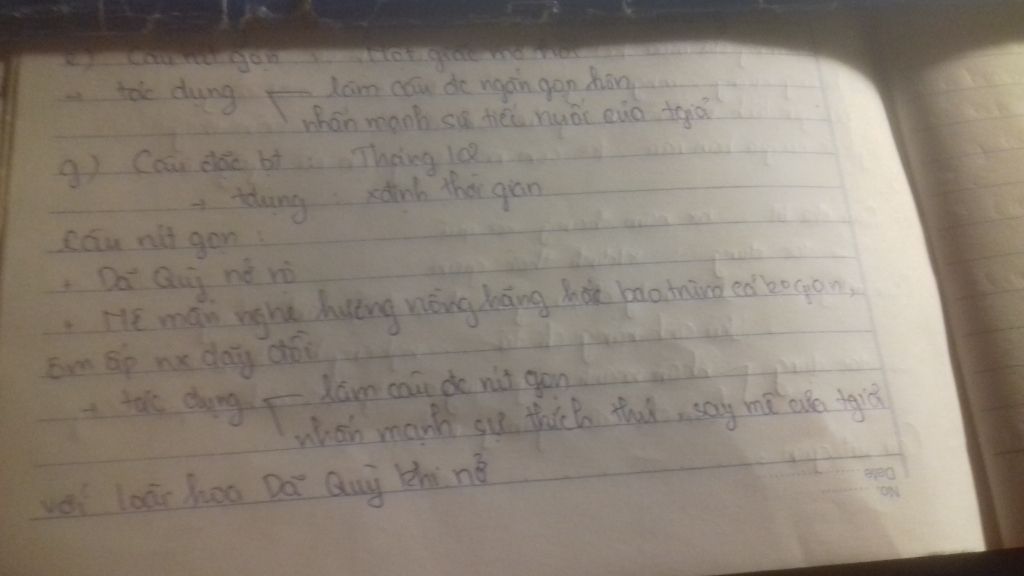 e) Câu rút gọn : Một giấc mơ thôi
→ tác dụng làm câu đc ngắn gọn hơn
nhấn mạnh sự tiếc nuối của tgiả
g) Câu đặc bt : Tháng 10
→ tdụng : xđịnh thời gian
Câu rút gọn :
+ Dã Quỳ nở rộ
+ Mê mẩn nghe hương nồng hăng hắc bao trùm cả
ấm áp nx dãy đồi
→ tác dụng làm câu đc rút gọn
nhấn mạnh sự thích thú, say mê của tgiả
với loài hoa Dã Quỳ khi nở
No.
Date